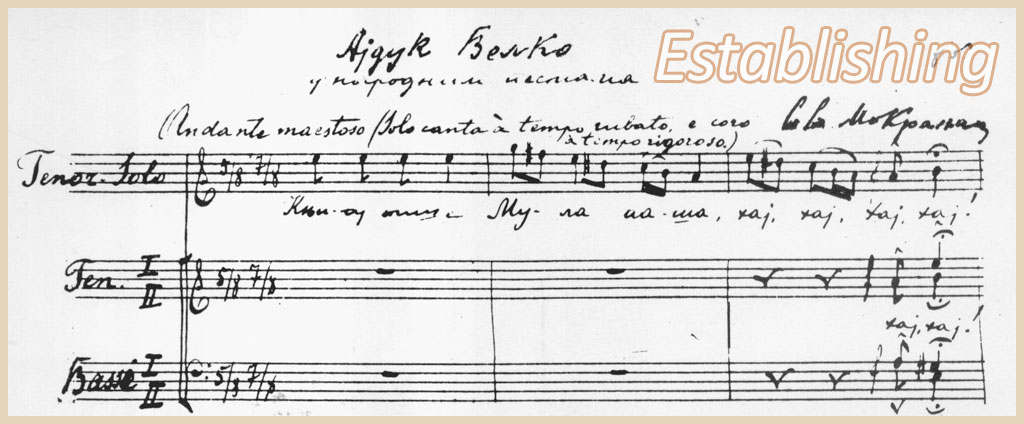 Establishing
Ајдук Вељко
у народним песмама
Andante maestoso (Solo canta à tempo rubato, e coro
à tempo rigoroso.)
Мокрањац
Tenor-Solo 5/8 7/8
Књи-гу пише Му-ла па-ша, хај, хај, хај, хај!
Ten. I II 5/8 7/8
хај, хај!
Bassi I II 5/8 7/8